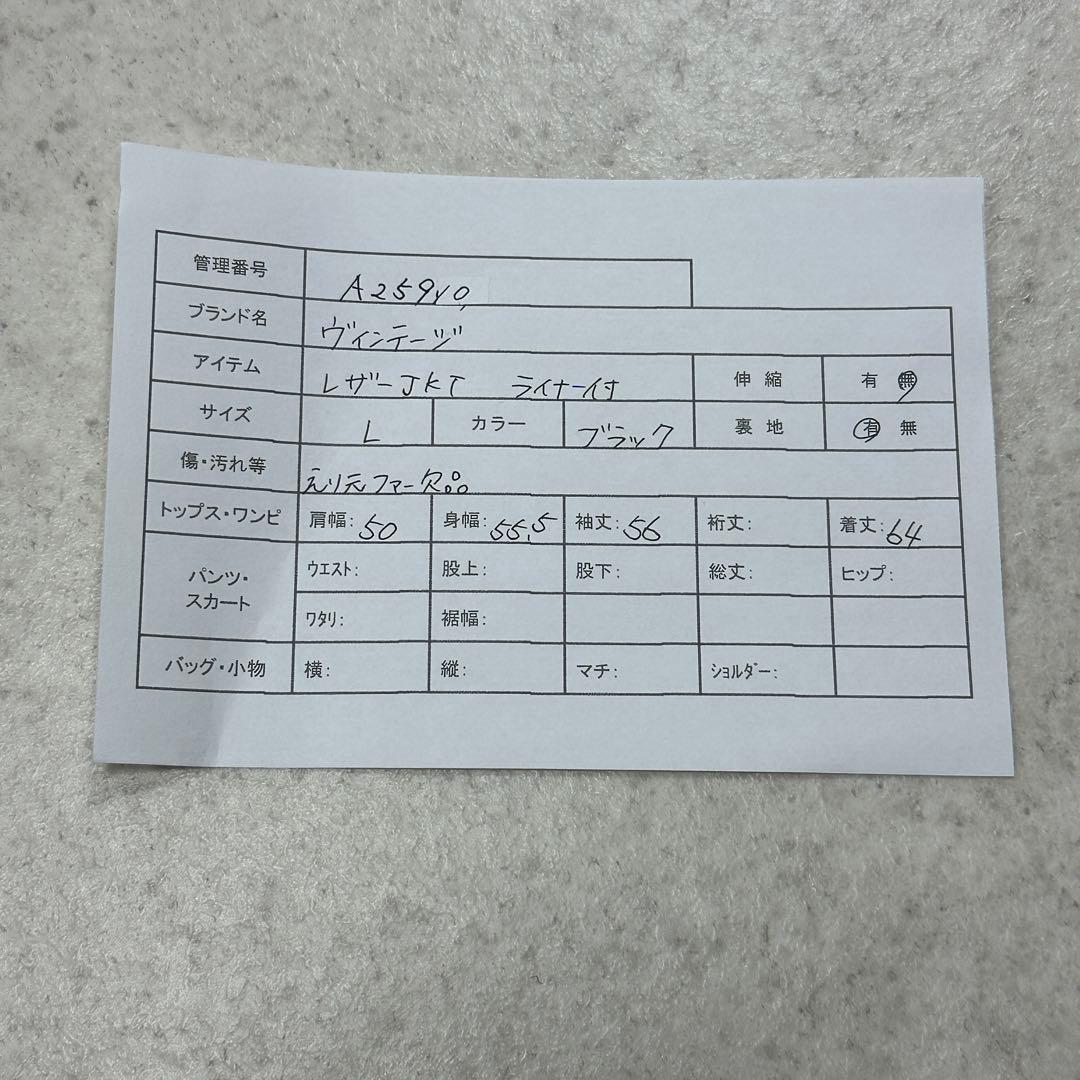 管理番号 A25940
ブランド名 ヴィンテージ
アイテム レザーJKT ライナー付 伸縮 有 無
サイズ L カラー ブラック 裏地 有 無
傷・汚れ等 えり元ファー欠品
トップス・ワンピ 肩幅: 50 身幅: 55.5 袖丈: 56 裄丈: 着丈: 64
パンツ・スカート ウエスト: 股上: 股下: 総丈: ヒップ:
ワタリ: 裾幅:
バッグ・小物 横: 縦: マチ: ショルダー: